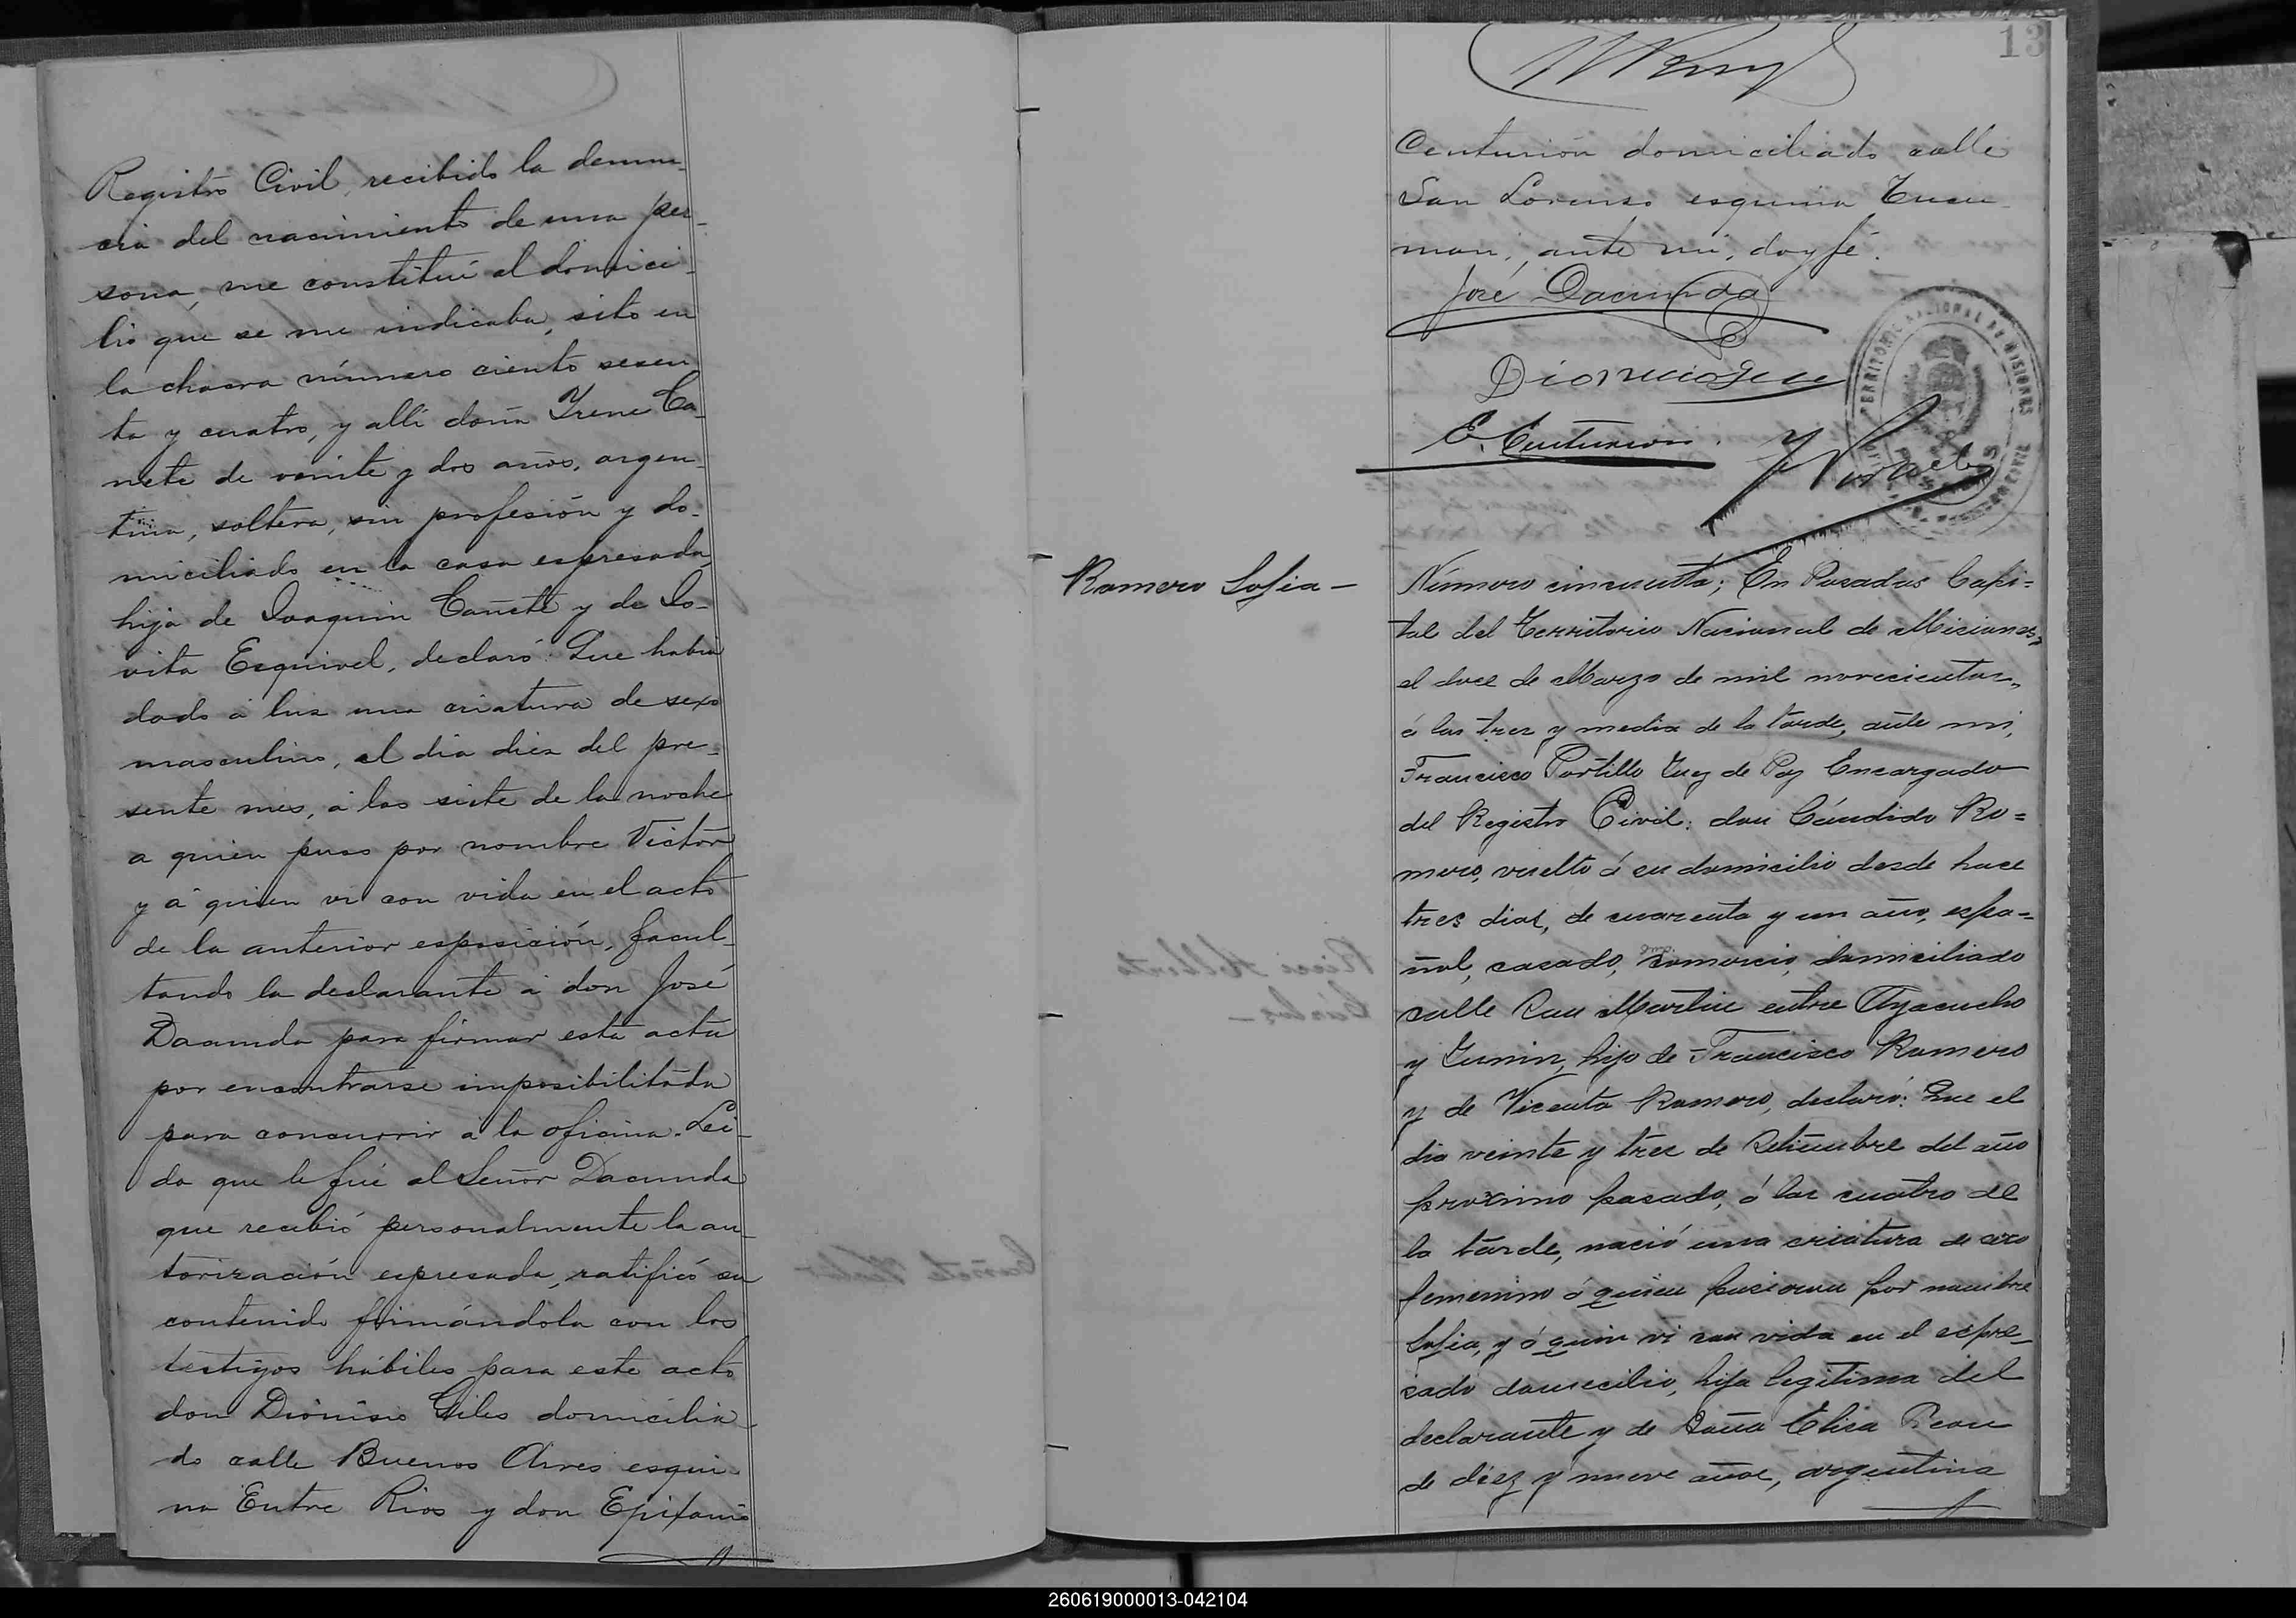 Registro Civil, recibido la denun-
cia del nacimiento de una per-
sona, me constituí al domici-
lio que se me indicaba, sito en
la chacra número ciento sesen
ta y cuatro, y allí doña Irene Ca-
ñete de veinte y dos años, argen-
tina, soltera, sin profesión y do-
miciliado en la casa espresada,
hija de Joaquin Cañete y de Jo-
vita Esquivel, declaró: Que habia
dado á luz una criatura de sexo
masculino, el dia diez del pre-
sente mes, á las siete de la noche
a quien puso por nombre Victor
y á quien vi con vida en el acto
de la anterior esposición, facul-
tando la declarante á don José
Dacunda para firmar esta acta
por encontrarse imposibilitada
para concurrir á la oficina. Lei-
da que le fué al Señor Dacunda
que recibió personalmente la au-
torización espresada, ratificó su
contenido firmándola con los
testigos hábiles para este acto
don Dionisio Giles domicilia-
do calle Buenos Aires esqui-
na Entre Rios y don Epifanio
13
Centurión domiciliado calle
San Lorenzo esquina Tucu-
man; ante mi, doy fé.
José Dacunda
E. Centurion
TERRITORIO NACIONAL DE MISIONES
POSADAS
Romero Sofia —
Número cincuenta; En Posadas Capi=
tal del Territorio Nacional de Misiones,
el doce de Marzo de mil novecientos,
á las tres y media de la tarde, ante mi,
Francisco Portillo Juez de Paz Encargado
del Registro Civil: don Cándido Ro=
mero, vuelto á su domicilio desde hace
tres dias, de cuarenta y un año, espa=
ñol, casado, comercio, domiciliado
calle San Martin entre Ayacucho
y Junin, hijo de Francisco Romero
y de Vicenta Romero, declaró: Que el
dia veinte y tres de Setiembre del año
proximo pasado, á las cuatro de
la tarde, nació una criatura de sexo
femenino á quien pusieron por nombre
Sofia, y á quien vi con vida en el espre-
sado domicilio, hija legitima del
declarante y de Doña Elisa
de diez y nueve años, argentina
260619000013-042104